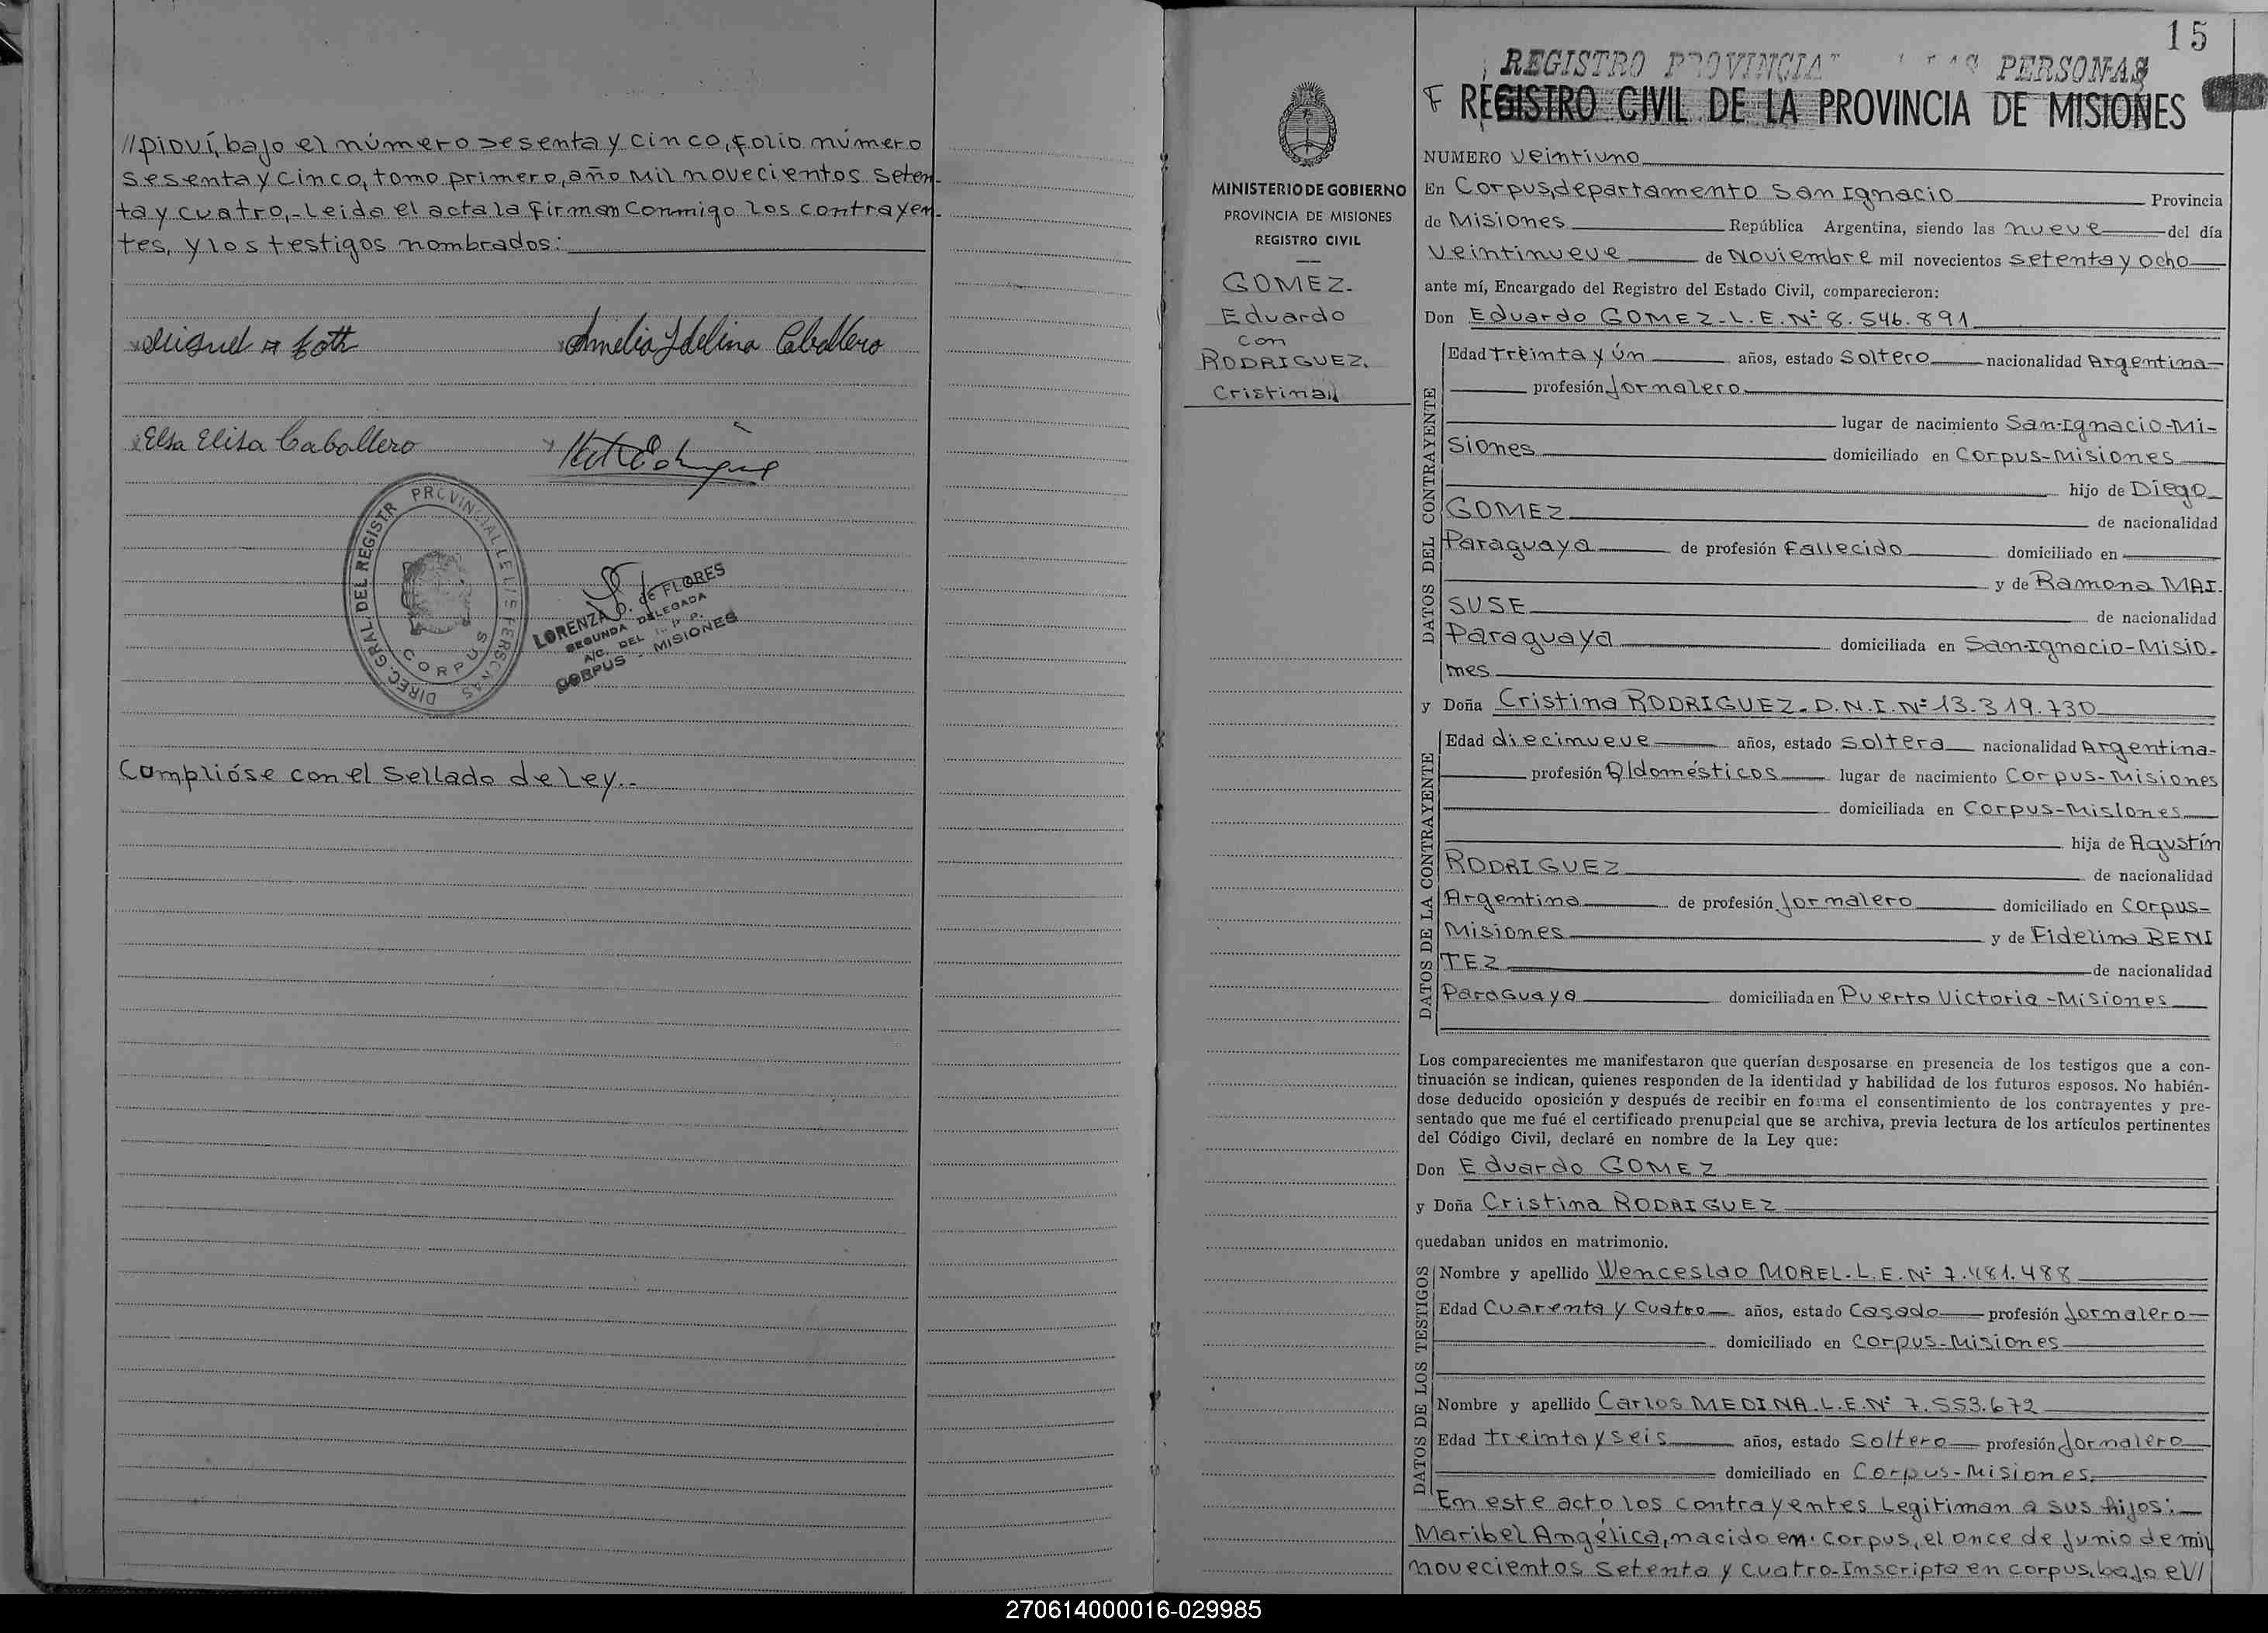 //pioví, bajo el número sesenta y cinco, folio número
sesenta y cinco, tomo primero, año mil novecientos seten-
ta y cuatro,- Leida el acta la firman conmigo los contrayen-
tes, y los testigos nombrados:
Amelia Idelina Caballero
Elsa Elisa Caballero
DIREC. GRAL. DEL REGISTR PROVINCIAL DE LAS PERSONAS
CORPUS
LORENZA D. de FLORES
SEGUNDA DELEGADA
A/C. DEL R. P. P.
CORPUS - MISIONES
Cumplióse con el Sellado de Ley.-
15
REGISTRO PROVINCIAL LAS PERSONAS
REGISTRO CIVIL DE LA PROVINCIA DE MISIONES
MINISTERIO DE GOBIERNO
PROVINCIA DE MISIONES
REGISTRO CIVIL
GOMEZ.
Eduardo
con
RODRIGUEZ.
Cristina
NUMERO Veintiuno
En Corpus, departamento San Ignacio Provincia
de Misiones República Argentina, siendo las nueve del día
Veintinueve de Noviembre mil novecientos setenta y ocho
ante mí, Encargado del Registro del Estado Civil, comparecieron:
Don Eduardo GOMEZ - L.E. Nº 8.546.891
DATOS DEL CONTRAYENTE
Edad treinta y ún años, estado Soltero nacionalidad Argentina
profesión Jornalero
lugar de nacimiento San-Ignacio-Mi-
siones domiciliado en Corpus-Misiones
hijo de Diego
GOMEZ de nacionalidad
Paraguaya de profesión Fallecido domiciliado en
y de Ramona MAI-
SUSE de nacionalidad
Paraguaya domiciliada en San-Ignacio-Misio-
nes
y Doña Cristina RODRIGUEZ - D.N.I. Nº 13.319.730
DATOS DE LA CONTRAYENTE
Edad diecinueve años, estado Soltera nacionalidad Argentina-
profesión Q/domésticos lugar de nacimiento Corpus-Misiones
domiciliada en Corpus-Misiones
hija de Agustín
RODRIGUEZ de nacionalidad
Argentina de profesión Jornalero domiciliado en Corpus-
Misiones y de Fidelina BENI
TEZ de nacionalidad
Paraguaya domiciliada en Puerto Victoria-Misiones
Los comparecientes me manifestaron que querían desposarse en presencia de los testigos que a con-
tinuación se indican, quienes responden de la identidad y habilidad de los futuros esposos. No habién-
dose deducido oposición y después de recibir en forma el consentimiento de los contrayentes y pre-
sentado que me fué el certificado prenupcial que se archiva, previa lectura de los artículos pertinentes
del Código Civil, declaré en nombre de la Ley que:
Don Eduardo GOMEZ
y Doña Cristina RODRIGUEZ
quedaban unidos en matrimonio.
DATOS DE LOS TESTIGOS
Nombre y apellido Wenceslao MOREL - L.E. Nº 7.481.488
Edad Cuarenta y Cuatro años, estado Casado profesión Jornalero
domiciliado en Corpus-Misiones
Nombre y apellido Carlos MEDINA. L.E. Nº 7.553.672
Edad treinta y seis años, estado Soltero profesión Jornalero
domiciliado en Corpus-Misiones.
En este acto los contrayentes Legitiman a sus hijos:
Maribel Angélica, nacido en Corpus, el once de Junio de mil
novecientos setenta y cuatro-Inscripta en corpus, bajo el//
270614000016-029985